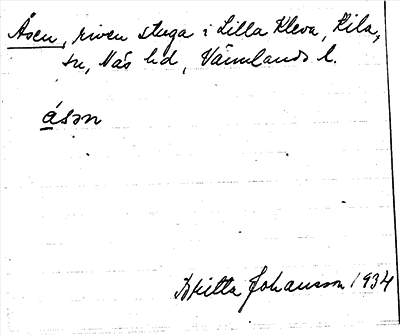 Åsen, riven stuga i Lilla Kleva, Kila,
sn, Näs hd, Värmlands l.
åsən
Britta Johansson 1934